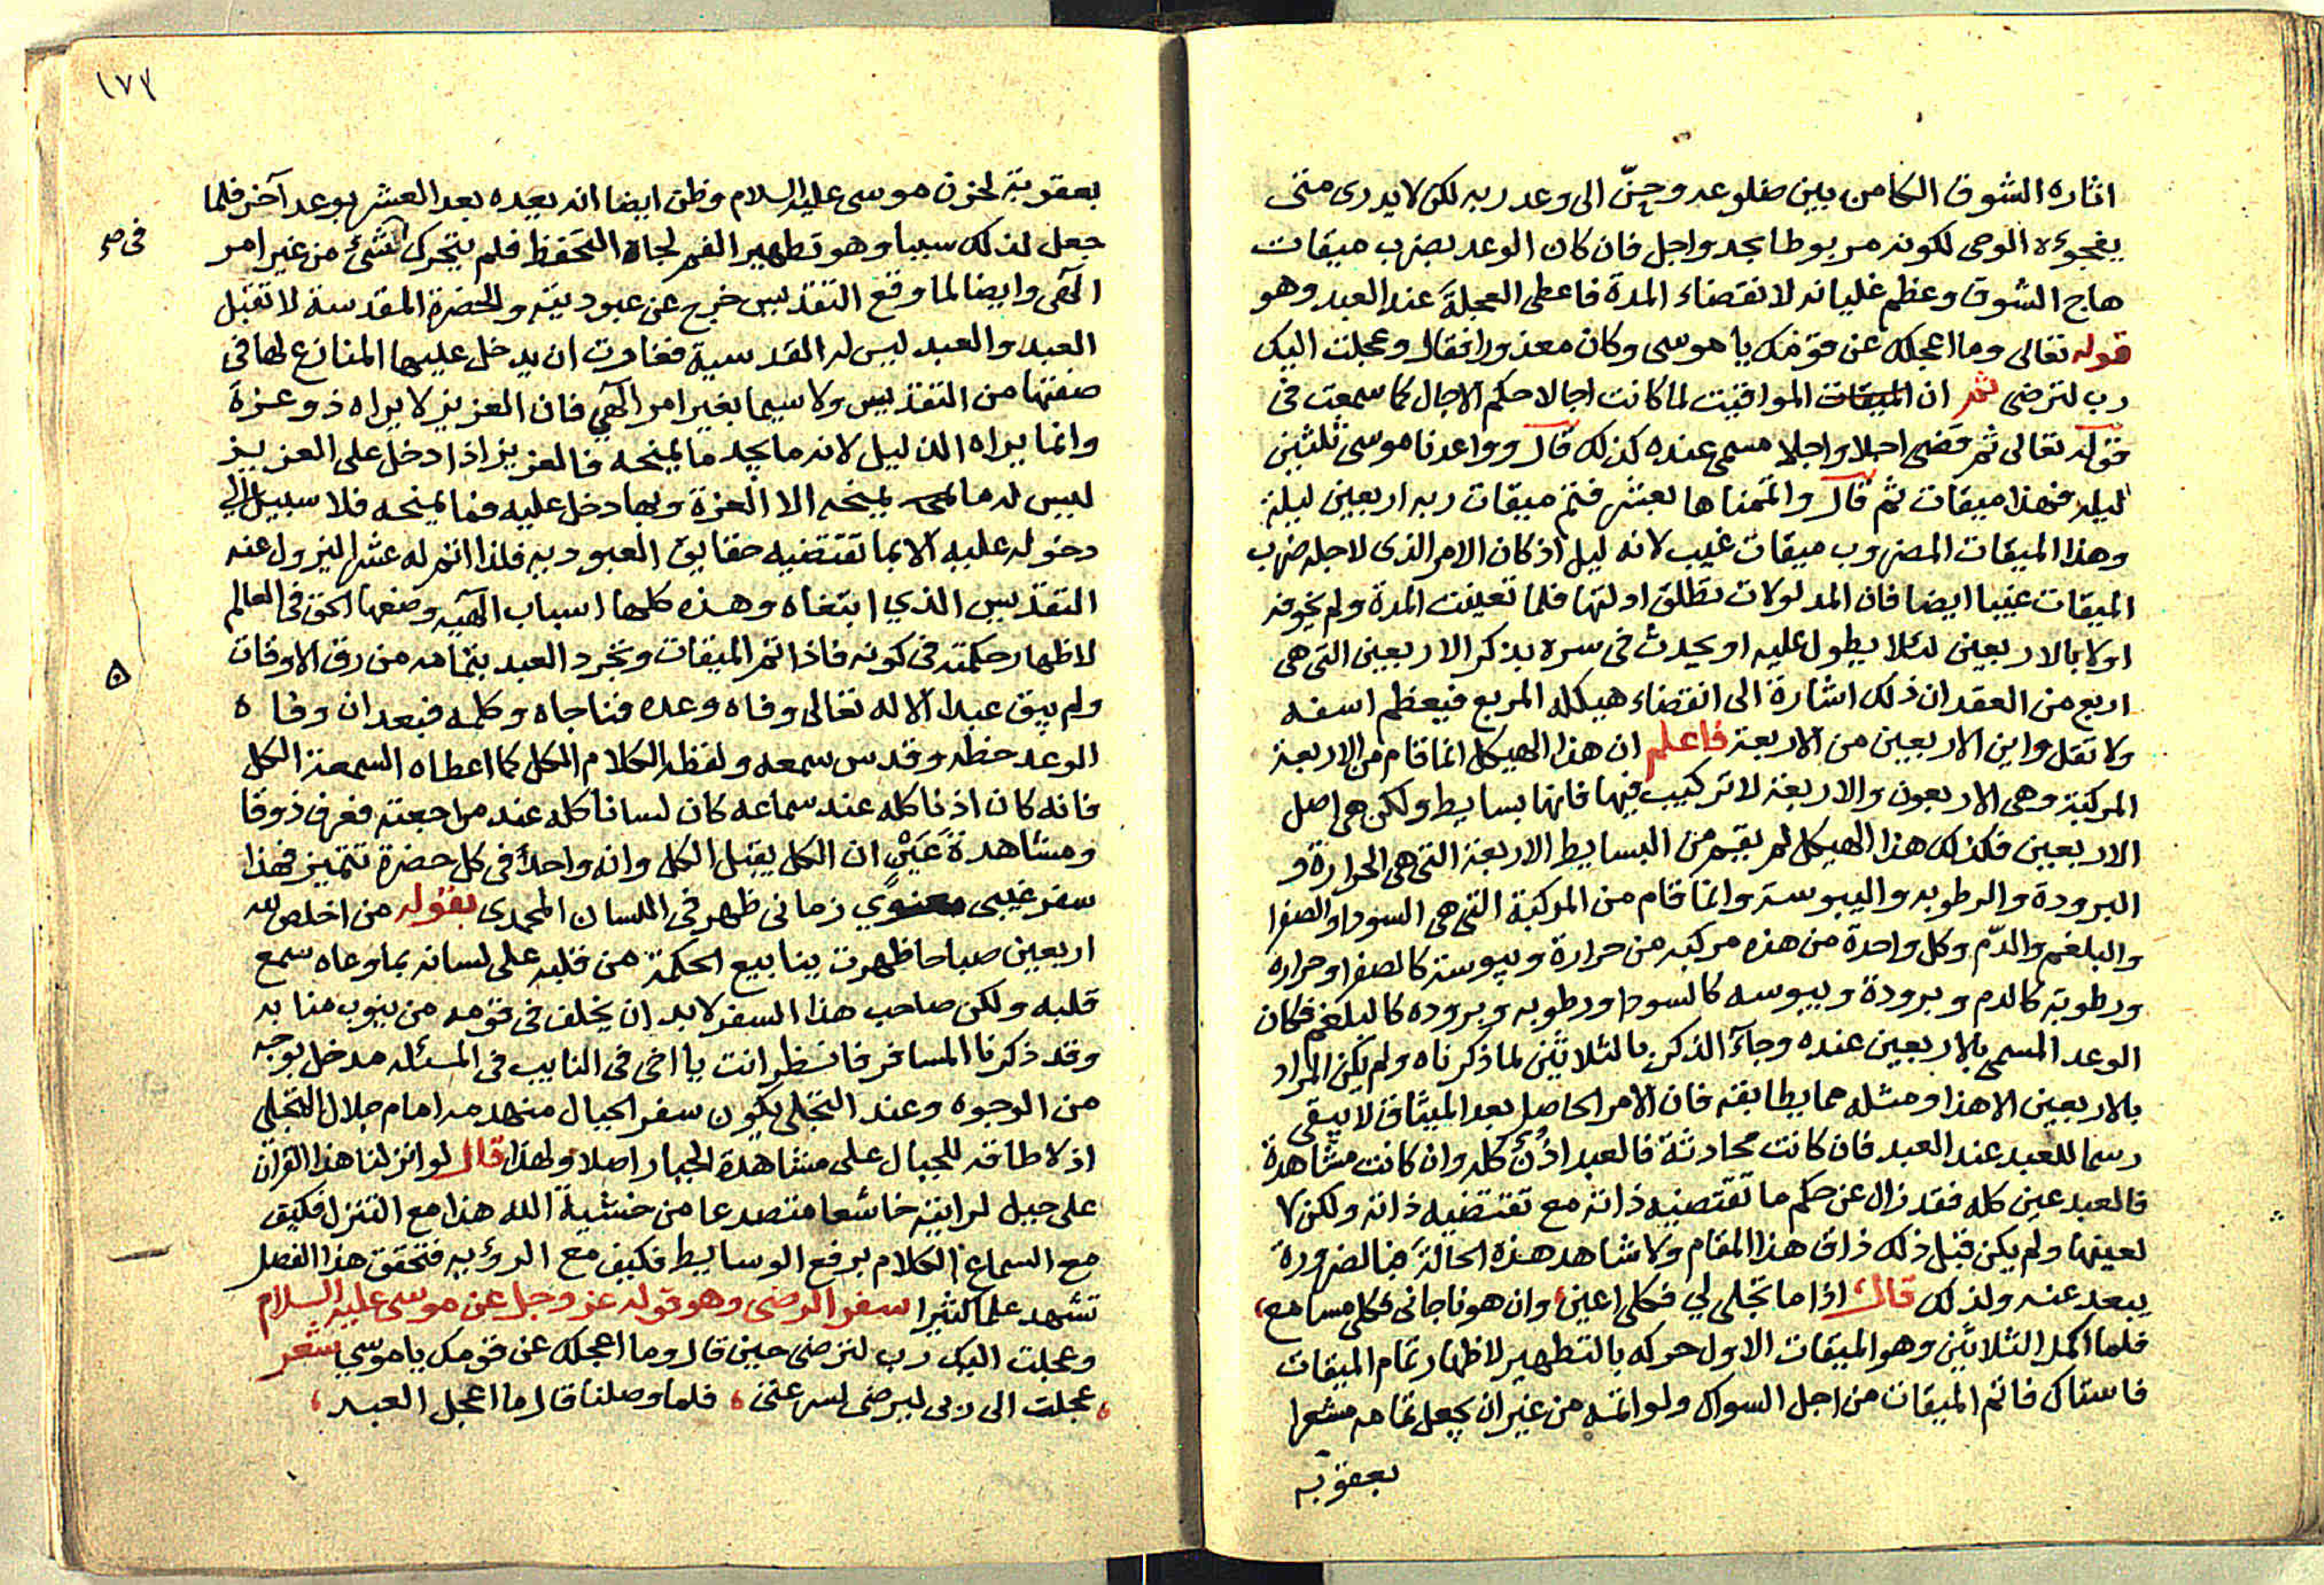 اثاره الشوق الكامن بين ضلوعه وحنّ الى وعد ربه لكن لا يدرى متى
يفجوءه الوحى لكونه مربوطا بحد واجل فان كان الوعد بضرب ميقات
هاج الشوق وعظم غليانه لانقضاء المدة فاعطى العجلةَ عند العبد وهو
قوله تعالى وما اعجلك عن قومك يا موسى وكان معذورا فقال وعجلت اليك
رب لترضى ثمر ان الميقات المواقيت لما كانت اجالا حكم الاجال كما سمعت فى
قوله تعالى ثم قضى اجلا واجلا مسمى عنده كذلك قال وواعدنا موسى ثلثين
ليله فهذا ميقات ثم قال واتممناها بعشر فتم ميقات ربه اربعين ليلة
وهذا الميقات المضروب ميقات غيب لانه ليل اذ كان الامر الذى لاجله ضرب
الميقات غيبا ايضا فان المدلولات تطلق ادلتها فلما تعينت المدة ولم يخوفه
اولا بالاربعين لئلا يطول عليه او يحدث فى سره بذكر الاربعين التى هى
اربع من العقد ان ذلك اشارة الى انقضاء هيكله المربع فيعظم اسفه
ولا تقل واين الاربعين من الاربعة فاعلم ان هذا الهيكل انما قام من الاربعة
المركبة وهى الاربعون والاربعة لا تركيب فيها فانها بسايط ولكن هى اصل
الاربعين فكذلك هذا الهيكل لم يقم من البسايط الاربعة التى هى الحرارة و
البرودة والرطوبه واليبوسة وانما قام من المركبة التى هى السودا والصفرا
والبلغم والدّم وكل واحدة من هذه مركبه من حرارة ويبوسة كالصفرا وحرارة
ورطوبة كالدم وبرودة ويبوسه كالسودا ورطوبه وبروده كالبلغم فكان
الوعد المسمى بالاربعين عنده وجآء الذكر بالثلاثين لما ذكرناه ولم يكن المراد
بالاربعين الا هذا او مثله مما يطابقه فان الامر الحاصل بعد الميثاق لا يبقى
رسما للعبد عند العبد فان كانت محادثة فالعبد اذُنٌ كله وان كانت مشاهدة
فالعبد عين كله فقد زال عن حكم ما تقتضيه ذاته مع تقتضيه ذاته ولكن لا
لعينها ولم يكن قبل ذلك ذاق هذا المقام ولا شاهد هذه الحالة فبالضرورة
يبعد عنه ولذلك قال اذا ما تجلى لي فكلى اعين، وان هو ناجانى فكلى مسامع،
فلما اكمل الثلاثين وهو الميقات الاول حركه بالتطهير لاظهار تمام الميقات
فاستاك فاتم الميقات من اجل السواك ولو اتمه من غير ان يجعل تمامه مشعرا
بعقوبة
١٧٣
بعقوبة لحزن موسى عليه السلام وظن ايضا انه يعيده بعد العشر بوعد آخر فلما
جعل لذلك سببا وهو تطهير الفم لجاه التحفظ فلم يتحرك لشئ من غير امر
الآهى وايضا لما وقع التقديس خرج عن عبوديته والحضرة المقدسة لا تقبل
العبد والعبد ليس له القدسية فغارت ان يدخل عليها المنازع لها فى
صفتها من التقديس ولا سيما بغير امر الآهي فان العزيز لا يراه ذو عزة
وانما يراه الذليل لانه ما يجد ما يمنحه فالعزيز اذا دخل على العزيز
ليس له ما يمنحه الا العزة وبها دخل عليه فما يمنحه فلا سبيل الى
دخوله عليه الا بما تقتضيه حقايق العبوديه فلذا اتم له عشرا ليزول عنه
التقديس الذي ابتغاه وهذه كلها اسباب الآهيه وضعها الحق فى العالم
لاظهار حكمته فى كونه فاذا تم الميقات وتجرد العبد بتمامه من رق الاوقات
ولم يبق عبدا الا له تعالى وفاه وعده فناجاه وكلمه فبعد ان وفاه
الوعد حظه وقدس سمعه ولفظه الكلام الكل كما اعطاه السمعة الكل
فانه كان اذنا كله عند سماعه كان لسانا كله عند مراجعته فعرف ذوقا
ومشاهدة عَيْنٍ ان الكل يقبل الكل وانه واحدٌ فى كل حضرة تتميز فهذا
سفر غيبى معنوي زمانى ظهر فى اللسان المحمدى بقوله من اخلص لله
اربعين صباحا ظهرت ينابيع الحكمة من قلبه على لسانه بما وعاه سمع
قلبه ولكن صاحب هذا السفر لا بد ان يخلف فى قومه من ينوب منابه
وقد ذكرنا المسافر فانظر انت يا اخى فى النايب فى المسئله مدخل بوجه
من الوجوه وعند التجلى يكون سفر الجبال منهدمه امام جلال التجلى
اذ لا طاقه للجبال على مشاهدة الجبار اصلا ولهذا قال لو انزلنا هذا القرآن
على جبل لرايته خاشعا متصدعا من خشية الله هذا مع التنزل فكيف
مع السماع الكلام برفع الوسايط فكيف مع الرؤيه فتحقق هذا الفصل
تشهد علما كثيرا سفر الرضى وهو قوله عز وجل عن موسى عليه السلام
وعجلت اليك رب لترضى حين قال وما اعجلك عن قومك يا موسى شعر
، عجلت الى ربى ليرضى لسرعتى، فلما وصلنا قال ما اعجل العبد،